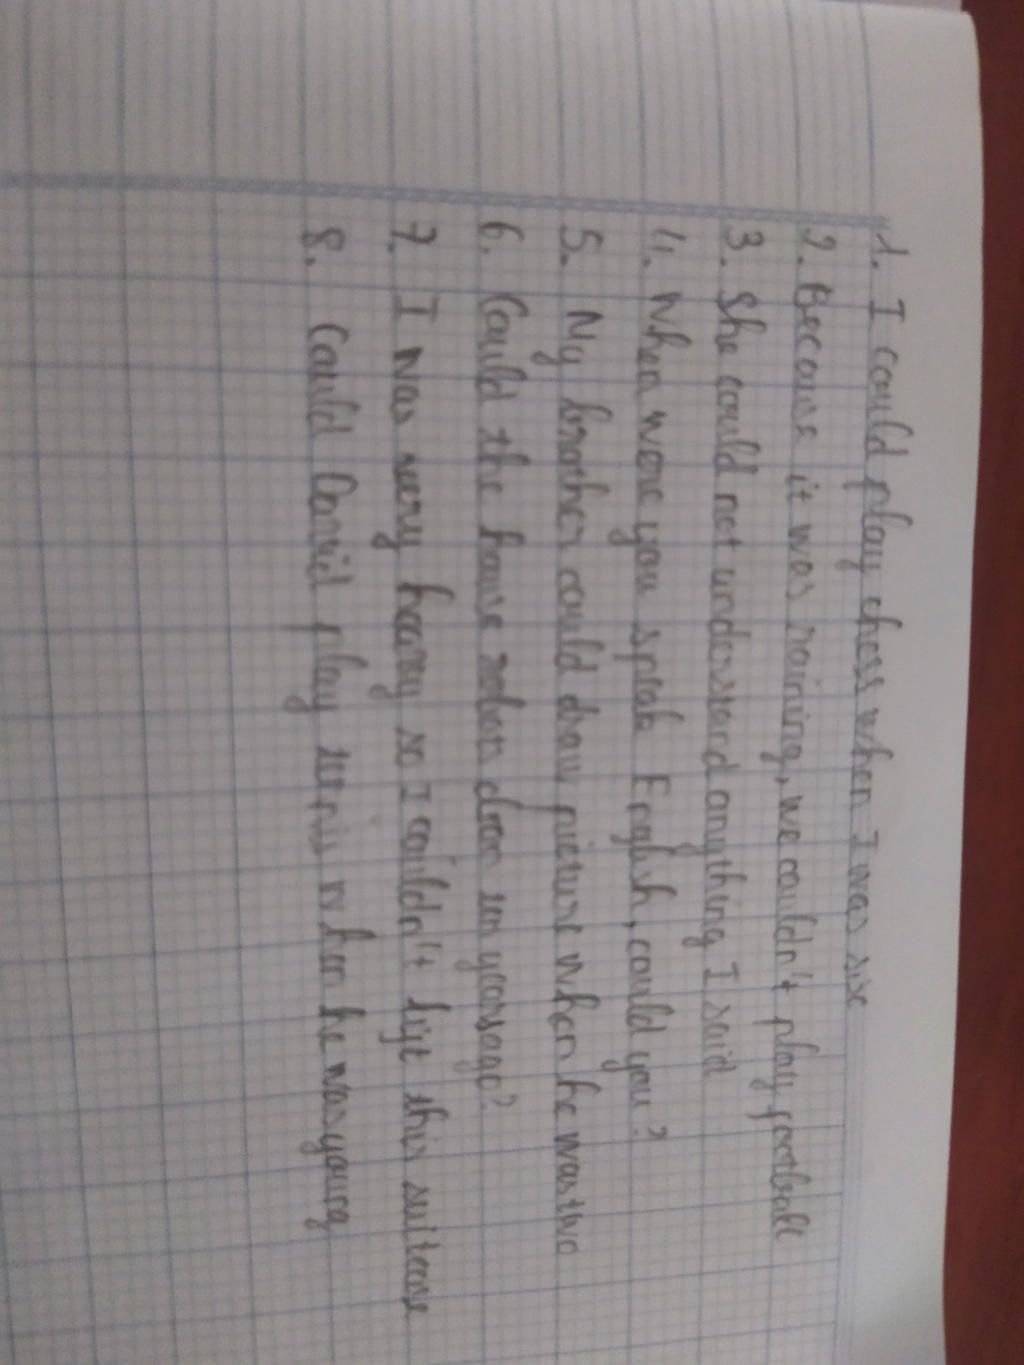 1. I could play chess when I was six
2. Because it was raining, we couldn't play football
3. She could not understand anything I said
4. When were you speak English, could you?
5. My brother could draw picture when he was two
6. Could the house robon draw ten years ago?
7. I was very heavy so I couldn't lift this suitcase
8. Could David play tenis when he was young